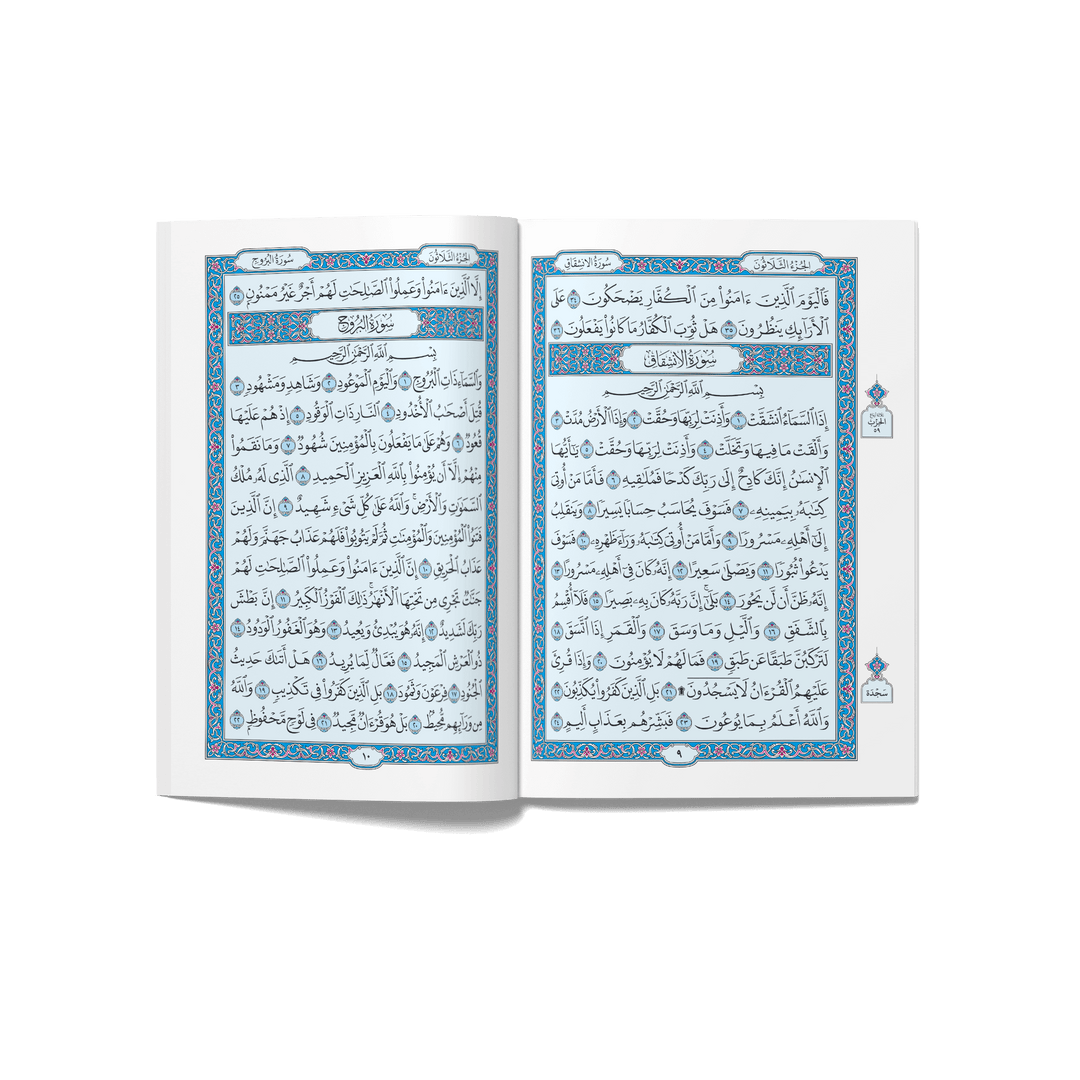 سُورَةُ الانشِقَاقِ
الجُزْءُ الثَّلَاثُونَ
فَٱلْيَوْمَ ٱلَّذِينَ ءَامَنُواْ مِنَ ٱلْكُفَّارِ يَضْحَكُونَ ٣٤ عَلَى
ٱلْأَرَآئِكِ يَنظُرُونَ ٣٥ هَلْ ثُوِّبَ ٱلْكُفَّارُ مَا كَانُواْ يَفْعَلُونَ ٣٦
سُورَةُ الانشِقَاقِ
بِسْمِ ٱللَّهِ ٱلرَّحْمَٰنِ ٱلرَّحِيمِ
إِذَا ٱلسَّمَآءُ ٱنشَقَّتْ ١ وَأَذِنَتْ لِرَبِّهَا وَحُقَّتْ ٢ وَإِذَا ٱلْأَرْضُ مُدَّتْ ٣
وَأَلْقَتْ مَا فِيهَا وَتَخَلَّتْ ٤ وَأَذِنَتْ لِرَبِّهَا وَحُقَّتْ ٥ يَٰٓأَيُّهَا
ٱلْإِنسَٰنُ إِنَّكَ كَادِحٌ إِلَىٰ رَبِّكَ كَدْحًا فَمُلَٰقِيهِ ٦ فَأَمَّا مَنْ أُوتِيَ
كِتَٰبَهُۥ بِيَمِينِهِۦ ٧ فَسَوْفَ يُحَاسَبُ حِسَابًا يَسِيرًا ٨ وَيَنقَلِبُ
إِلَىٰٓ أَهْلِهِۦ مَسْرُورًا ٩ وَأَمَّا مَنْ أُوتِيَ كِتَٰبَهُۥ وَرَآءَ ظَهْرِهِۦ ١٠ فَسَوْفَ
يَدْعُواْ ثُبُورًا ١١ وَيَصْلَىٰ سَعِيرًا ١٢ إِنَّهُۥ كَانَ فِىٓ أَهْلِهِۦ مَسْرُورًا ١٣
إِنَّهُۥ ظَنَّ أَن لَّن يَحُورَ ١٤ بَلَىٰٓۚ إِنَّ رَبَّهُۥ كَانَ بِهِۦ بَصِيرًا ١٥ فَلَآ أُقْسِمُ
بِٱلشَّفَقِ ١٦ وَٱلَّيْلِ وَمَا وَسَقَ ١٧ وَٱلْقَمَرِ إِذَا ٱتَّسَقَ ١٨
لَتَرْكَبُنَّ طَبَقًا عَن طَبَقٍ ١٩ فَمَا لَهُمْ لَا يُؤْمِنُونَ ٢٠ وَإِذَا قُرِئَ
عَلَيْهِمُ ٱلْقُرْءَانُ لَا يَسْجُدُونَ ۩ ٢١ بَلِ ٱلَّذِينَ كَفَرُواْ يُكَذِّبُونَ ٢٢
وَٱللَّهُ أَعْلَمُ بِمَا يُوعُونَ ٢٣ فَبَشِّرْهُم بِعَذَابٍ أَلِيمٍ ٢٤
٩
الحِزْبُ
٥٩
سَجْدَة
سُورَةُ البُرُوجِ
الجُزْءُ الثَّلَاثُونَ
إِلَّا ٱلَّذِينَ ءَامَنُواْ وَعَمِلُواْ ٱلصَّٰلِحَٰتِ لَهُمْ أَجْرٌ غَيْرُ مَمْنُونٍۭ ٢٥
سُورَةُ البُرُوجِ
بِسْمِ ٱللَّهِ ٱلرَّحْمَٰنِ ٱلرَّحِيمِ
وَٱلسَّمَآءِ ذَاتِ ٱلْبُرُوجِ ١ وَٱلْيَوْمِ ٱلْمَوْعُودِ ٢ وَشَاهِدٍ وَمَشْهُودٍ ٣
قُتِلَ أَصْحَٰبُ ٱلْأُخْدُودِ ٤ ٱلنَّارِ ذَاتِ ٱلْوَقُودِ ٥ إِذْ هُمْ عَلَيْهَا
قُعُودٌ ٦ وَهُمْ عَلَىٰ مَا يَفْعَلُونَ بِٱلْمُؤْمِنِينَ شُهُودٌ ٧ وَمَا نَقَمُواْ
مِنْهُمْ إِلَّآ أَن يُؤْمِنُواْ بِٱللَّهِ ٱلْعَزِيزِ ٱلْحَمِيدِ ٨ ٱلَّذِى لَهُۥ مُلْكُ
ٱلسَّمَٰوَٰتِ وَٱلْأَرْضِۚ وَٱللَّهُ عَلَىٰ كُلِّ شَىْءٍ شَهِيدٌ ٩ إِنَّ ٱلَّذِينَ
فَتَنُواْ ٱلْمُؤْمِنِينَ وَٱلْمُؤْمِنَٰتِ ثُمَّ لَمْ يَتُوبُواْ فَلَهُمْ عَذَابُ جَهَنَّمَ وَلَهُمْ
عَذَابُ ٱلْحَرِيقِ ١٠ إِنَّ ٱلَّذِينَ ءَامَنُواْ وَعَمِلُواْ ٱلصَّٰلِحَٰتِ لَهُمْ
جَنَّٰتٌ تَجْرِى مِن تَحْتِهَا ٱلْأَنْهَٰرُۚ ذَٰلِكَ ٱلْفَوْزُ ٱلْكَبِيرُ ١١ إِنَّ بَطْشَ
رَبِّكَ لَشَدِيدٌ ١٢ إِنَّهُۥ هُوَ يُبْدِئُ وَيُعِيدُ ١٣ وَهُوَ ٱلْغَفُورُ ٱلْوَدُودُ ١٤
ذُو ٱلْعَرْشِ ٱلْمَجِيدُ ١٥ فَعَّالٌ لِّمَا يُرِيدُ ١٦ هَلْ أَتَىٰكَ حَدِيثُ
ٱلْجُنُودِ ١٧ فِرْعَوْنَ وَثَمُودَ ١٨ بَلِ ٱلَّذِينَ كَفَرُواْ فِى تَكْذِيبٍ ١٩ وَٱللَّهُ
مِن وَرَآئِهِم مُّحِيطٌۢ ٢٠ بَلْ هُوَ قُرْءَانٌ مَّجِيدٌ ٢١ فِى لَوْحٍ مَّحْفُوظٍۭ ٢٢
١٠